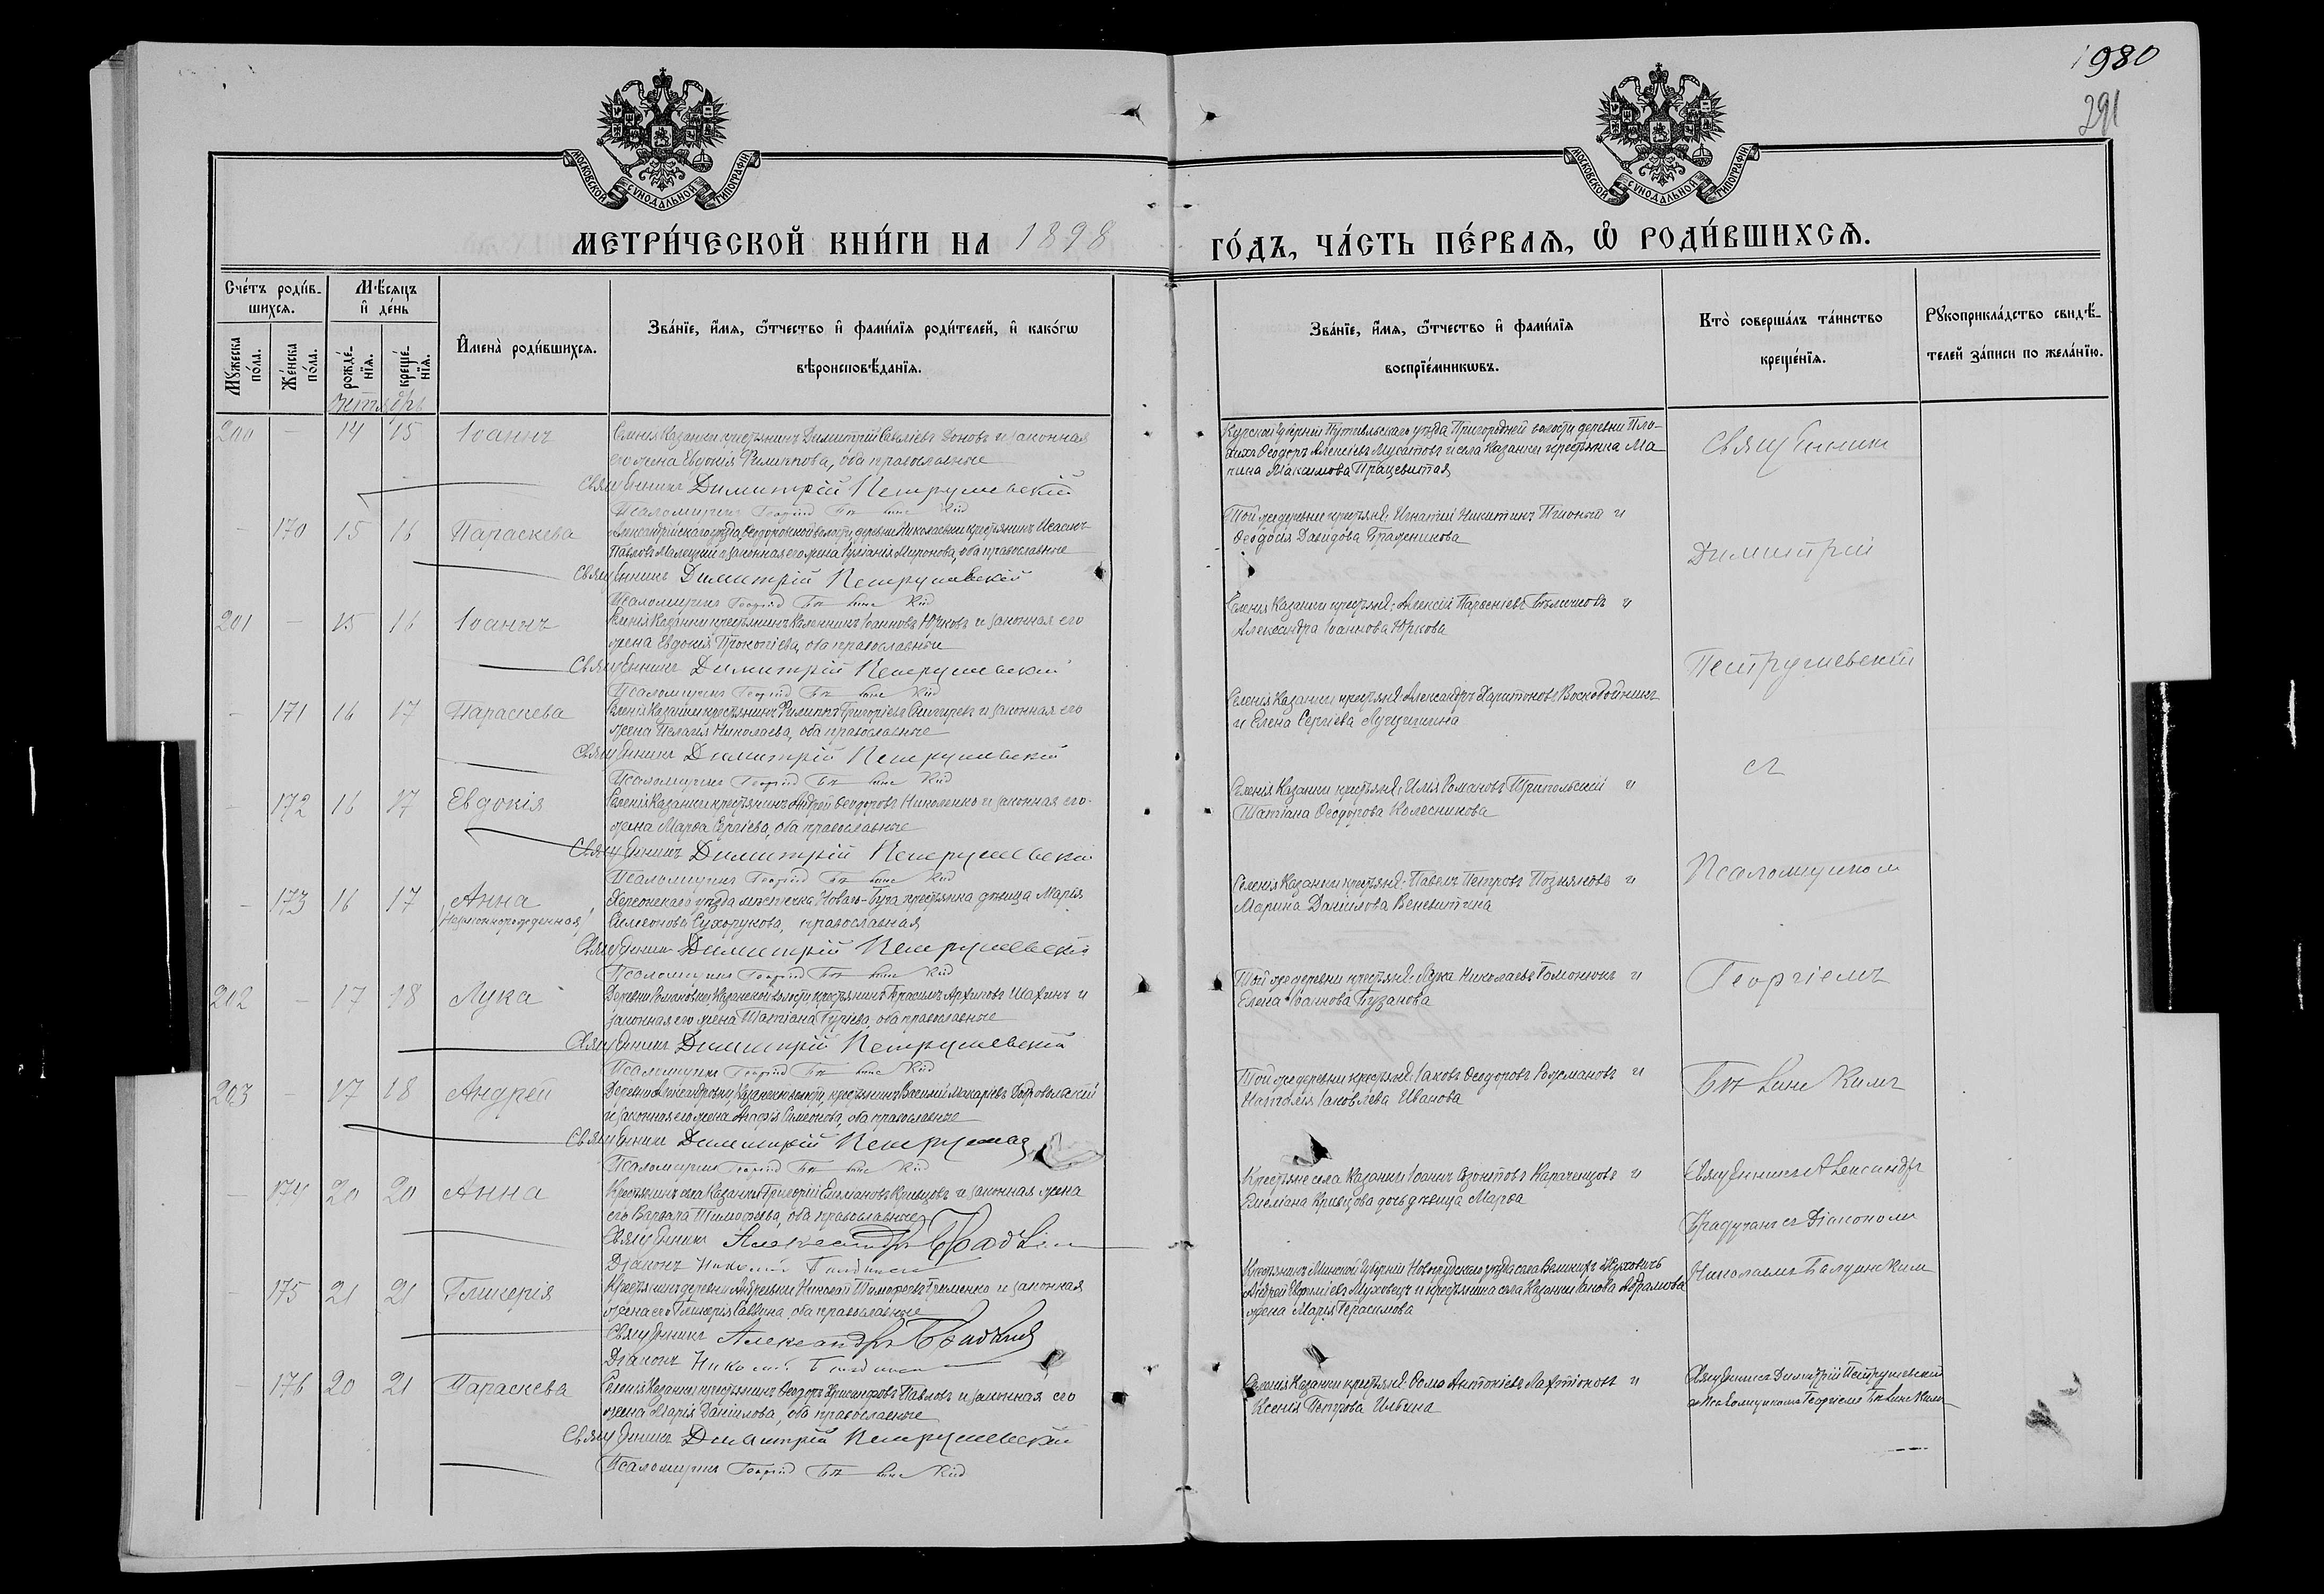 1980
291
МОСКОВСКОЙ СУНОДАЛЬНОЙ ТИПОГРАФІИ
МОСКОВСКОЙ СУНОДАЛЬНОЙ ТИПОГРАФІИ
МЕТРИ́ЧЕСКОЙ КНИ́ГИ НА 1898
ГО́ДЪ, ЧА́СТЬ ПЕ́РВАѦ, Ѡ РОДИ́ВШИХСѦ.
Сче́тъ роди́вшихсѧ.
Мꙋ́жеска по́ла.
Же́нска по́ла.
Мѣ́сѧцъ и҆ де́нь
рожде́нїѧ.
креще́нїѧ.
Октябрь
И҆мена̀ роди́вшихсѧ.
Зва́нїе, и҆́мѧ, ѻ҆́тчество и҆ фами́лїѧ роди́телей, и҆ како́гѡ
вѣроисповѣ́данїѧ.
Зва́нїе, и҆́мѧ, ѻ҆́тчество и҆ фами́лїѧ
воспрїе́мникѡвъ.
Кто̀ соверша́лъ та́инство
креще́нїѧ.
Рꙋкоприкла́дство свидѣ́телей за́писи по жела́нїю.
200 – 14 15 Іоаннъ
Селенія Казанки крестьянинъ Димитрій Доновъ и законная
его жена Евдокія Филиппова, оба православные
Священникъ Димитрій Петрушевскій
Псаломщикъ Георгій
Курской губерніи Путивльскаго уѣзда Пригородней волости деревни
Ѳеодоръ Алексіевъ и села Казанки крестьянка
Максимова
Священник
– 170 15 16 Параскева
Александрійскаго уѣзда, Ѳеодоровской волости, деревни Николаевки крестьянинъ Исаакъ
Павловъ Малецкій и законная его жена Іуліанія Миронова, оба православные
Священникъ Димитрій Петрушевскій
Псаломщикъ Георгій
Той же деревни крестьяне: Игнатій Никитинъ и
Ѳеодосія Давидова
Димитрій
201 – 15 16 Іоаннъ
Селенія Казанки крестьянинъ Каллиникъ Іоанновъ Юрковъ и законная его
жена Евдокія Прокопіева, оба православные
Священникъ Димитрій Петрушевскій
Псаломщикъ Георгій
Селенія Казанки крестьяне: Алексій Парѳеніевъ и
Александра Іоаннова Юркова
Петрушевскій
– 171 16 17 Параскева
Селенія Казанки крестьянинъ Филиппъ Григоріевъ Снигиревъ и законная его
жена Пелагія Николаева, оба православные
Священникъ Димитрій Петрушевскій
Псаломщикъ Георгій
Селенія Казанки крестьяне: Александръ Харитоновъ Воскобойникъ
и Елена Сергіева
съ
– 172 16 17 Евдокія
Селенія Казанки крестьянинъ Андрей Ѳеодоровъ Николенко и законная его
жена Марѳа Сергіева, оба православные
Священникъ Димитрій Петрушевскій
Псаломщикъ Георгій
Селенія Казанки крестьяне: Илія Романовъ Трипольскій и
Татіана Ѳеодорова Колесникова
Псаломщиком
– 173 16 17 Анна
(Незаконнорожденная)
Херсонскаго уѣзда мѣстечка Новаго-Буга крестьянка дѣвица Марія
Симеонова Сухорукова, православная
Священникъ Димитрій Петрушевскій
Псаломщикъ Георгій
Селенія Казанки крестьяне: Павелъ Петровъ Позняковъ и
Марина Даніилова Веневитина
202 – 17 18 Лука
Деревни Романовки Казанской волости, крестьянинъ Герасимъ Архиповъ Шахинъ и
законная его жена Татіана Гуріева, оба православные
Священникъ Димитрій Петрушевскій
Псаломщикъ Георгій
Той же деревни крестьяне: Лука Николаевъ и
Елена Іоаннова Бузанова
Георгіемъ
203 – 17 18 Андрей
Деревни Александровки, Казанской волости, крестьянинъ Василій Макаріевъ Добровольскій
и законная его жена Симеонова, оба православные
Священникъ Димитрій
Псаломщикъ Георгій
Той же деревни крестьяне: Іаковъ Ѳеодоровъ и
Наталія Іаковлева Иванова
– 174 20 20 Анна
Крестьянинъ села Казанки Григорій Емиліановъ Кривцовъ и законная жена
его Варвара Тимоѳеева, оба православные
Священникъ Александръ
Діаконъ Николай
Крестьяне села Казанки Іоаннъ Карачевцовъ и
Емиліана Кривцова дочь дѣвица Марѳа
Священникъ Александръ
съ Діакономъ
– 175 21 21 Гликерія
Крестьянинъ деревни Николай Тимоѳеевъ и законная
жена его Гликерія Саввина, оба православные
Священникъ Александръ
Діаконъ Николай
Крестьянинъ Минской губерніи Новогрудскаго уѣзда села
Андрей и крестьянина села Казанки Іакова Абрамова
жена Марія Герасимова
Николаемъ
– 176 20 21 Параскева
Селенія Казанки крестьянинъ Ѳеодоръ Хрисанѳовъ Павловъ и законная его
жена Марія Даніилова, оба православные
Священникъ Димитрій Петрушевскій
Псаломщикъ Георгій
Селенія Казанки крестьяне: Ѳома Антоніевъ и
Ксенія Петрова Ильина
Священникъ Димитрій Петрушевскій
съ Псаломщикомъ Георгіемъ